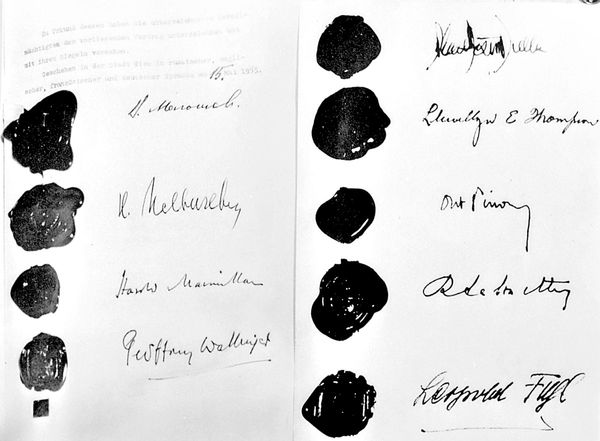 Zu Urkund dessen haben die unterzeichneten Bevoll-
mächtigten den vorliegenden Vertrag unterzeichnet und
mit ihren Siegeln versehen.
Geschehen in der Stadt Wien in russischer, engli-
scher, französischer und deutscher Sprache am 15. Mai 1955.
Harold Macmillan
Geoffrey Wallinger
Llewellyn E Thompson
Ant Pinay
R Lalouette
Leopold Figl